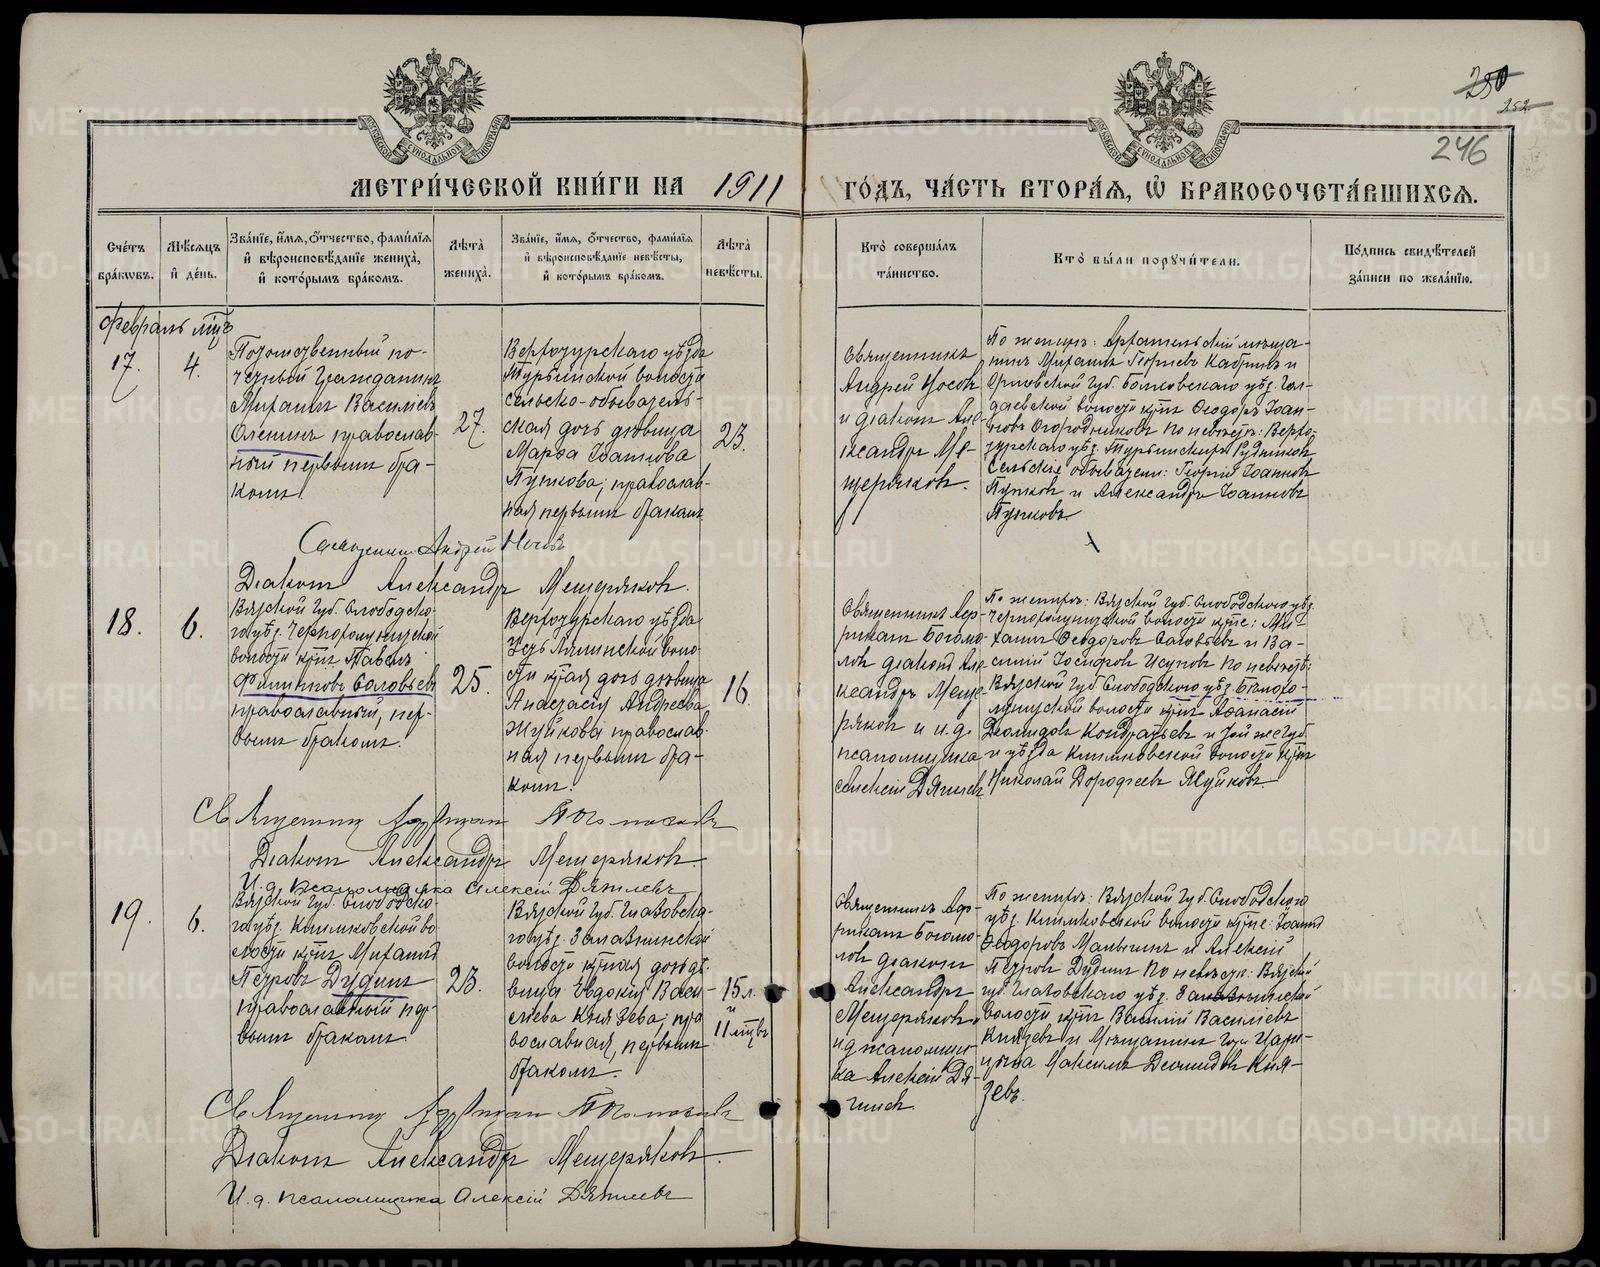 280
252
246
МОСКОВСКОЙ СѴНОДАЛЬНОЙ ТИПОГРАФІИ
МОСКОВСКОЙ СѴНОДАЛЬНОЙ ТИПОГРАФІИ
МЕТРИ́ЧЕСКОЙ КНИ́ГИ НА 1911 ГО́ДЪ, ЧА́СТЬ ВТОРА́Я, Ѽ БРАКОСОЧЕТА́ВШИХСЯ.
Сче́тъ бра́ковъ.
Мѣ́сяцъ и҆ де́нь.
Зва́нїе, и҆́мя, ѻ҆́тчество, фами́лїя и҆ вѣроисповѣ́данїе жениха̀, и҆ кото́рымъ бра́комъ.
Лѣ́та̀ жениха̀.
Зва́нїе, и҆́мя, ѻ҆́тчество, фами́лїя и҆ вѣроисповѣ́данїе невѣ́сты, и҆ кото́рымъ бра́комъ.
Лѣ́та̀ невѣ́сты.
Кто̀ соверша́лъ та́инство.
Кто̀ бы́ли порꙋчи́тели.
По́дпись свидѣ́телей за́писи по жела́нїю.
Февраль мцъ
17.
4.
Потомственный по-
четный гражданинъ
Михаилъ Васильевъ
Оленинъ православ-
ный первымъ бра-
комъ
27.
Верхотурскаго уѣзда
Турьинской волости
сельско-обыватель-
ская дочь дѣвица
Марѳа Іоаннова
Пупкова, православ-
ная первымъ бракомъ
23.
Священникъ
Андрей Носовъ
и діаконъ Але-
ксандръ Ме-
щеряковъ.
По женихѣ: Арзамаскій мѣща-
нинъ Михаилъ Георгіевъ
Орловской губ. Болховскаго уѣз.
волости кр҃нъ Ѳеодоръ Іоан-
новъ Огородниковъ По невѣстѣ: Верхо-
турскаго уѣз. Турьинскихъ Рудниковъ
Сельскіе обыватели: Георгій Іоанновъ
Пупковъ и Александръ Іоанновъ
Пупковъ.
Священникъ Андрей Носовъ
Діаконъ Александръ Мещеряковъ.
18.
6.
Вятской губ. Слободско-
го уѣз.
волости кр҃нъ Павелъ
Филипповъ Соловьевъ
православный, пер-
вымъ бракомъ.
25.
Верхотурскаго уѣзда
Усть Лялинской воло-
сти кр҃ская дочь дѣвица
Анастасія Андреева
Жуйкова православ-
ная первымъ бра-
комъ.
16.
Священникъ Адр-
ріанъ Богомо-
ловъ діаконъ Але-
ксандръ Меще-
ряковъ и и.д.
псаломщика
Алексій Дягилевъ
По женихѣ: Вятской губ. Слободского уѣз.
волости кр҃не: Ми-
хаилъ Ѳеодоровъ Соловьевъ и Ва-
силій Іосифовъ Исуповъ По невѣстѣ:
Вятской губ. Слободского уѣз. Бѣлохо-
луницкой волости кр҃нъ Аѳанасій
Діомидовъ Кондратьевъ и той же губ.
и уѣзда Климковской волости кр҃нъ
Николай Дорофеевъ Жуйковъ.
Священникъ Адріанъ Богомоловъ
Діаконъ Александръ Мещеряковъ.
И.д. псаломщика Алексій Дягилевъ
19.
6.
Вятской губ. Слободско-
го уѣз. Климковской во
лости кр҃нъ Михаилъ
Петровъ Дудинъ
православный пер-
вымъ бракомъ
23.
Вятской губ. Глазовска-
го уѣз. Залазнинской
волости кр҃ская дочь дѣ-
вица Евдокія Васи-
льева Князева, пра
вославная, первымъ
бракомъ.
15 л.
и
11 мцвъ
Священникъ Ад-
ріанъ Богомо-
ловъ діаконъ
Александръ
Мещеряковъ,
и.д псаломщи-
ка Алексій Дя-
гилевъ.
По женихѣ: Вятской губ. Слободского
уѣз. Климковской волости кр҃не: Іоаннъ
Ѳеодоровъ Малыгинъ и Алексій
Петровъ Дудинъ По невѣстѣ: Вятской
губ. Глазовскаго уѣз. Залазнинской
волости кр҃нъ Василій Васильевъ
Князевъ и мѣщанинъ гор. Цари-
цына Максимъ Діомидовъ Кня-
зевъ.
Священникъ Адріанъ Богомоловъ
Діаконъ Александръ Мещеряковъ.
И.д. псаломщика Алексій Дягилевъ
METRIKI.GASO-URAL.RU